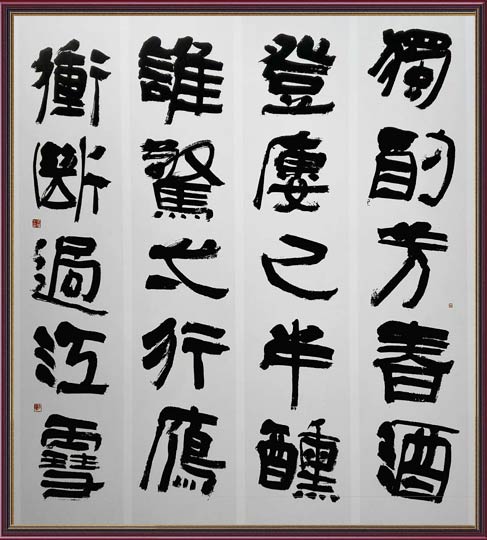 獨酌芳春酒
登廔已半醺
誰驚弌行鴈
衝斷過江雲